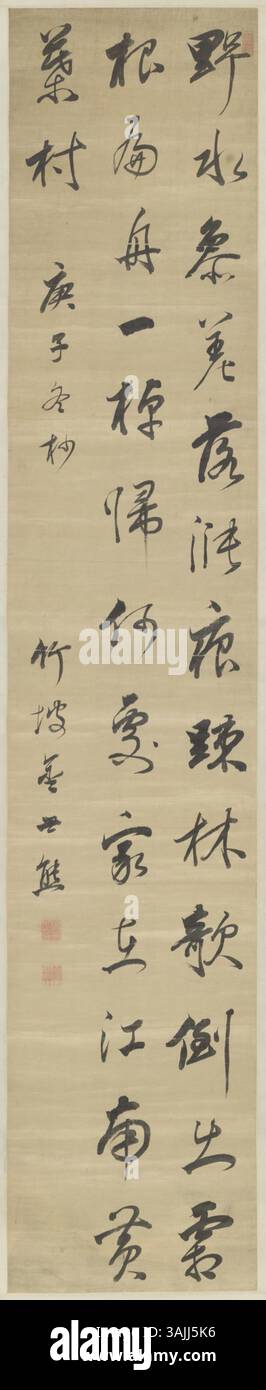 野水參差落漲痕踈林欹倒出霜
根扁舟一棹歸何處家在江南黃
葉村 庚子冬杪 竹坡 世熊
alamy
alamy
alamy
3AJJ5K6